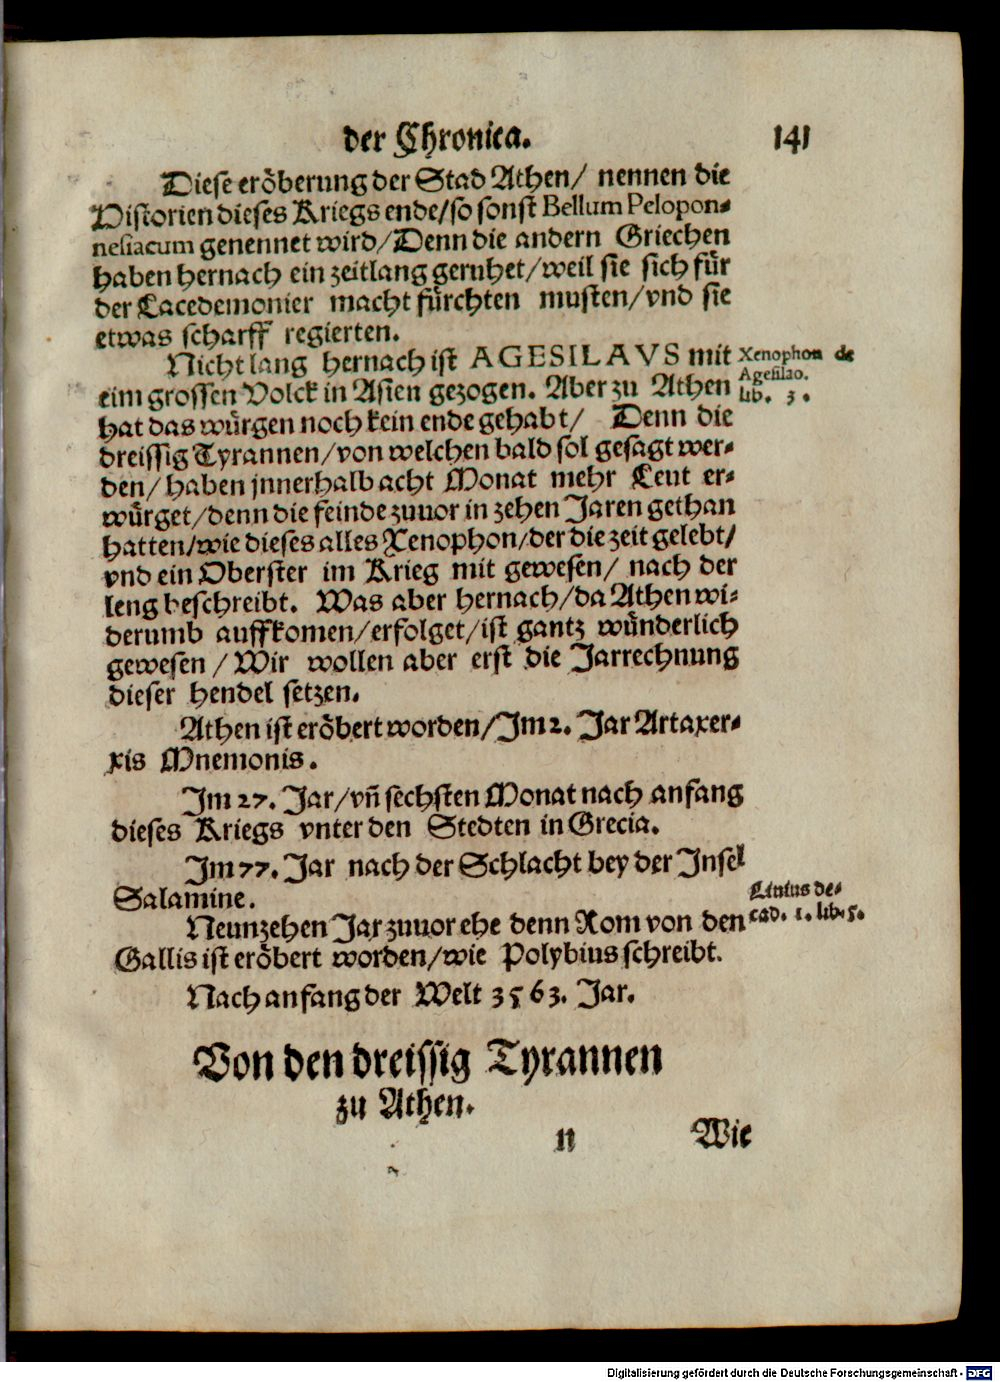 der Chronica. 141
Diese eröberung der Stad Athen/ nennen die
Historien dieses Kriegs ende/so sonst Bellum Pelopon-
nesiacum genennet wird/Denn die andern Griechen
haben hernach ein zeitlang geruhet/weil sie sich für
der Lacedemonier macht fürchten musten/vnd sie
etwas scharff regierten.
Nicht lang hernach ist AGESILAVS mit
Xenophon de
eim grossen Volck in Asien gezogen. Aber zu Athen
Agesilao.
lib. 3.
hat das würgen noch kein ende gehabt/ Denn die
dreissig Tyrannen/von welchen bald sol gesagt wer-
den/haben jnnerhalb acht Monat mehr Leut er-
würget/denn die feinde zuuor in zehen Jaren gethan
hatten/wie dieses alles Xenophon/der die zeit gelebt/
vnd ein Oberster im Krieg mit gewesen/ nach der
leng beschreibt. Was aber hernach/da Athen wi-
derumb auffkomen/erfolget/ist gantz wünderlich
gewesen/Wir wollen aber erst die Jarrechnung
dieser hendel setzen.
Athen ist eröbert worden/Jm 2. Jar Artaxer-
xis Mnemonis.
Jm 27. Jar/vñ sechsten Monat nach anfang
dieses Kriegs vnter den Stedten in Grecia.
Jm 77. Jar nach der Schlacht bey der Jnsel
Salamine.
Liuius de-
cad. 1. lib. 5.
Neunzehen Jar zuuor ehe denn Rom von den
Gallis ist eröbert worden/wie Polybius schreibt.
Nach anfang der Welt 3563. Jar.
Von den dreissig Tyrannen
zu Athen.
n Wie
Digitalisierung gefördert durch die Deutsche Forschungsgemeinschaft - DFG